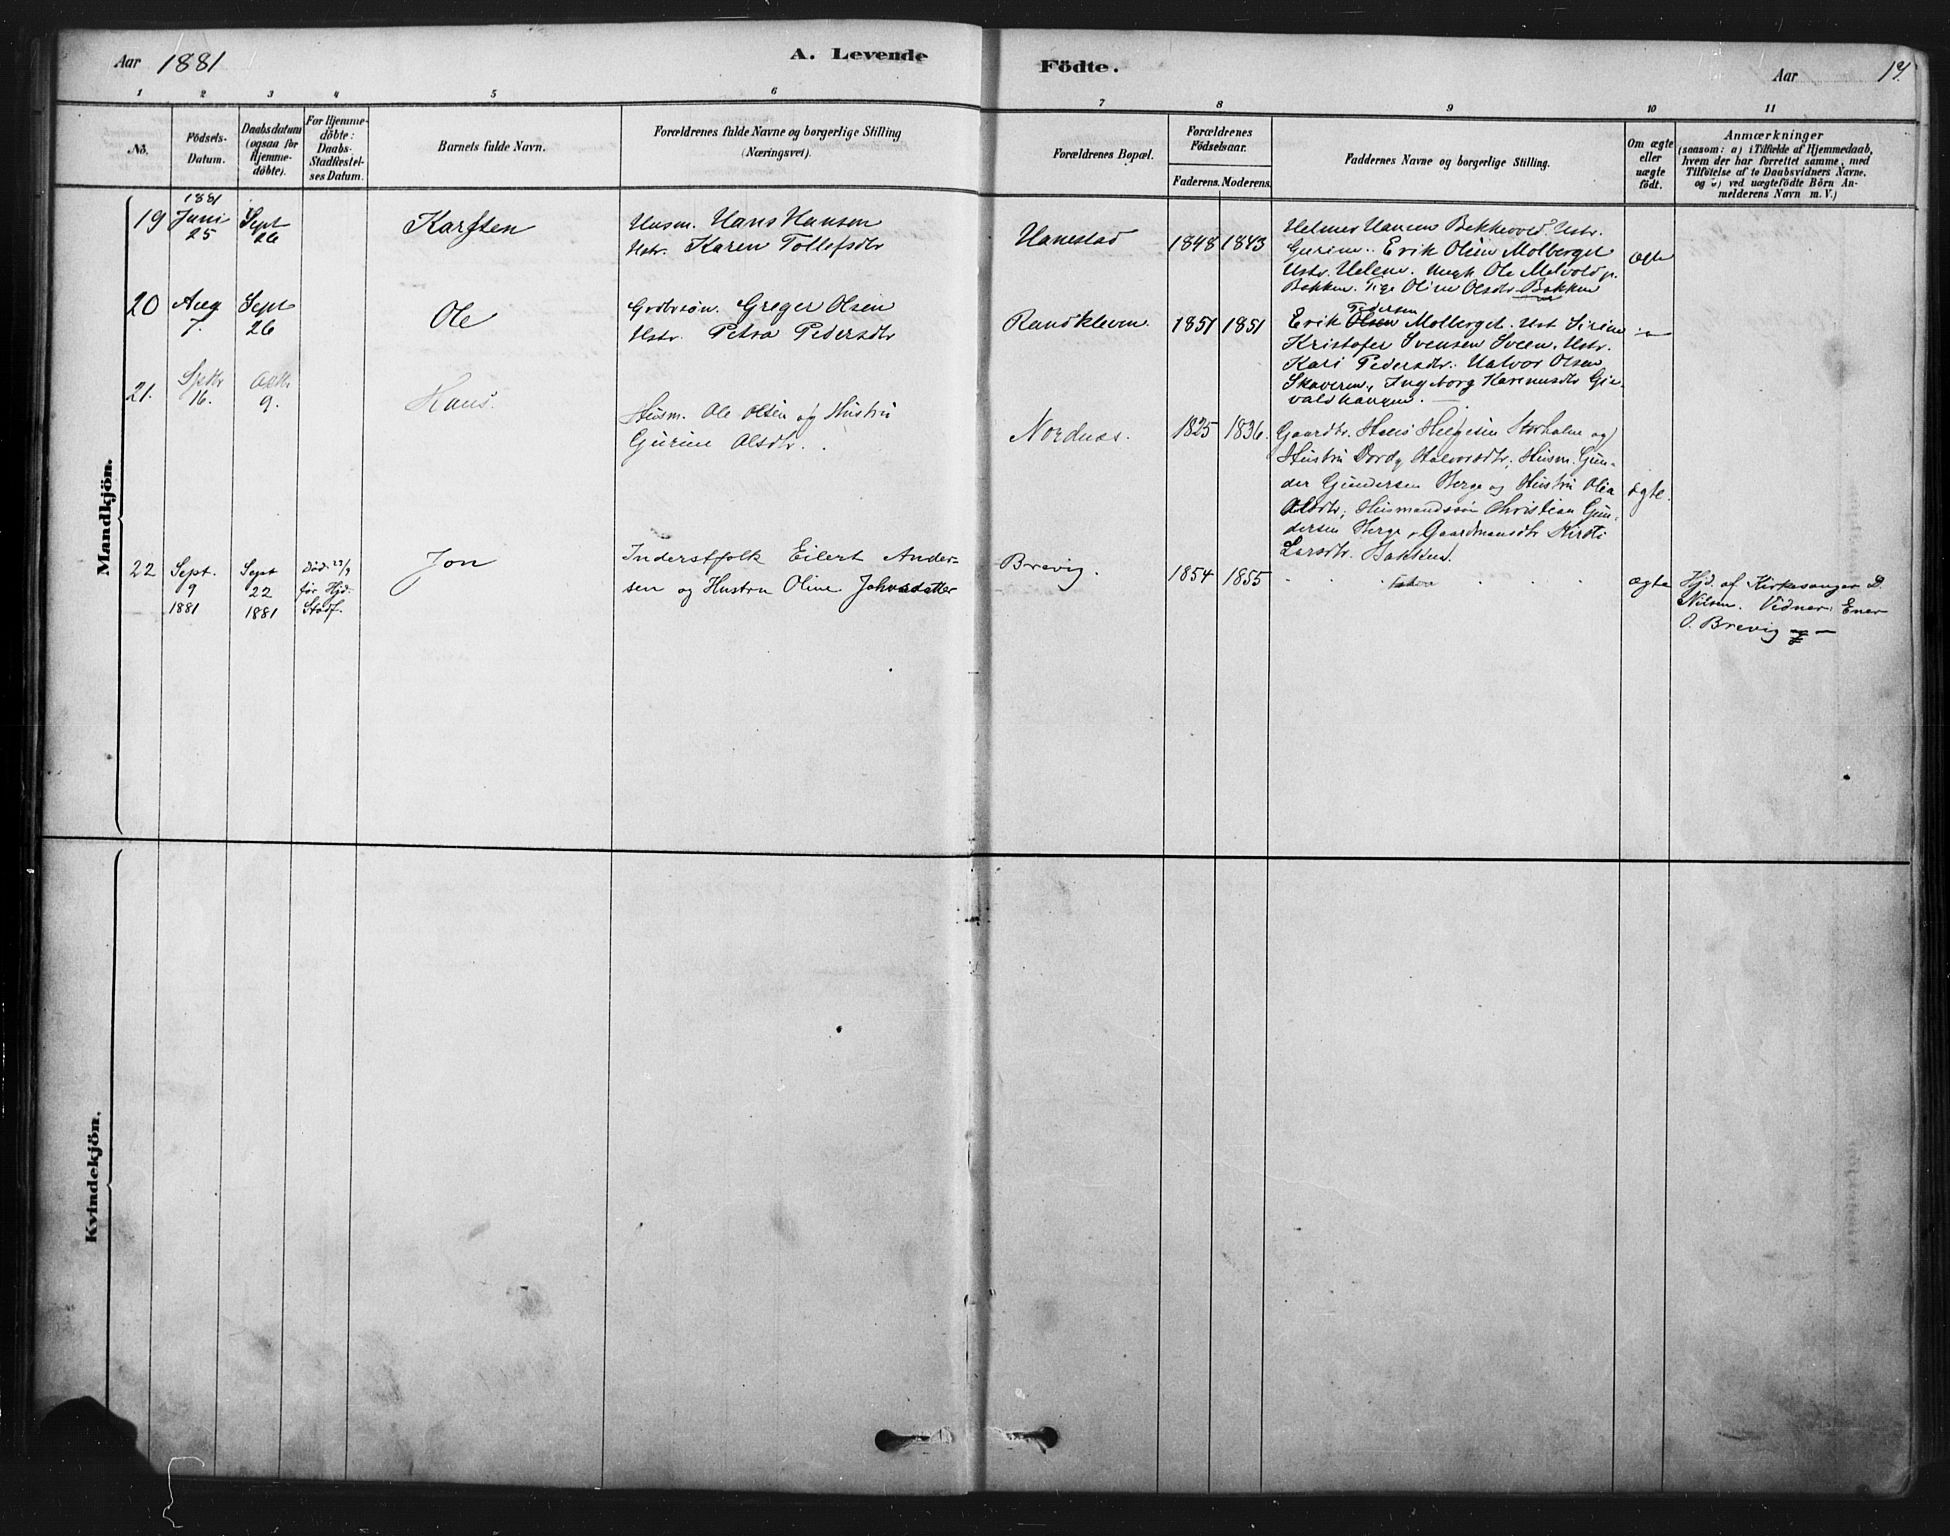 Aar 1881
A. Levende
Födte.
Aar
14.
1 2 3 4 5 6 7 8 9 10 11
No.
Födsels-
Datum.
Daabsdatum
(ogsaa for
Hjemme-
döbte).
For Hjemme-
döbte:
Daabs-
Stadfæstel-
ses Datum.
Barnets fulde Navn.
Forældrenes fulde Navne og borgerlige Stilling
(Næringsvei).
Forældrenes Bopæl.
Forældrenes
Födselsaar.
Faderens. Moderens.
Faddernes Navne og borgerlige Stilling.
Om ægte
eller
uægte
født.
Anmærkninger
(saasom: a) i Tilfælde af Hjemmedaab,
hvem der har forrettet samme, med
Tilföielse af to Daabsvidners Navne,
og b) ved uægtefödte Börn An-
melderens Navn m. V.)
Mandkjön.
19
1881
Juni
25
Sept
26
Karsten
Husm. Hans Hansen
Hstr. Karen Tollefsdtr
Hanestad
1848 1843
Helmer Hansen Bekkevold. Hstr.
Gurine. Erik Olsen Molberget
Hstr. Helene. Ungk Ole Melvold p.
Bakken. Pige Oline Olsdtr Bakken
ægte
20
Aug
7.
Sept
26
Ole
Gaardbrsøn. Greger Olsen
Hstr. Petra Pedersdtr
Randkleven.
1851 1851
Pedersen
Erik Olsen Molberget. Hst Sirine
Kristofer Svensen Sveen. Hstr.
Kari Pedersdtr. Halvor Olsen
Skaveren, Ingeborg Karenusdtr
21.
Septbr
16.
Octbr
9.
Hans.
Husm. Ole Olsen og Hustru
Gurine Olsdtr.
Nordnæs.
1825 1836.
Gaardbr. Hans Helgesen Storholm og
Hustru Dordy Halvorsdtr; Husm. Gun-
der Gundersen Berge og Hustru Olea
Olsdtr; Husmandssøn Christian Gun-
dersen Berge, Gaardmandsdtr Kirsti
Larsdtr. Bakken.
ægte.
22
Sept.
9
1881
Sept
22
1881
Död 23/9
før Hjd.
Stadf.
Jon
Inderstfolk Eilert Ander-
sen og Hustru Oline Johnsdatter
Brevig.
1854 1855
ægte
Hjd. af Kirkesanger D.
Nilsen. Vidner: Ener
O. Brevig og
Kvindekjön.